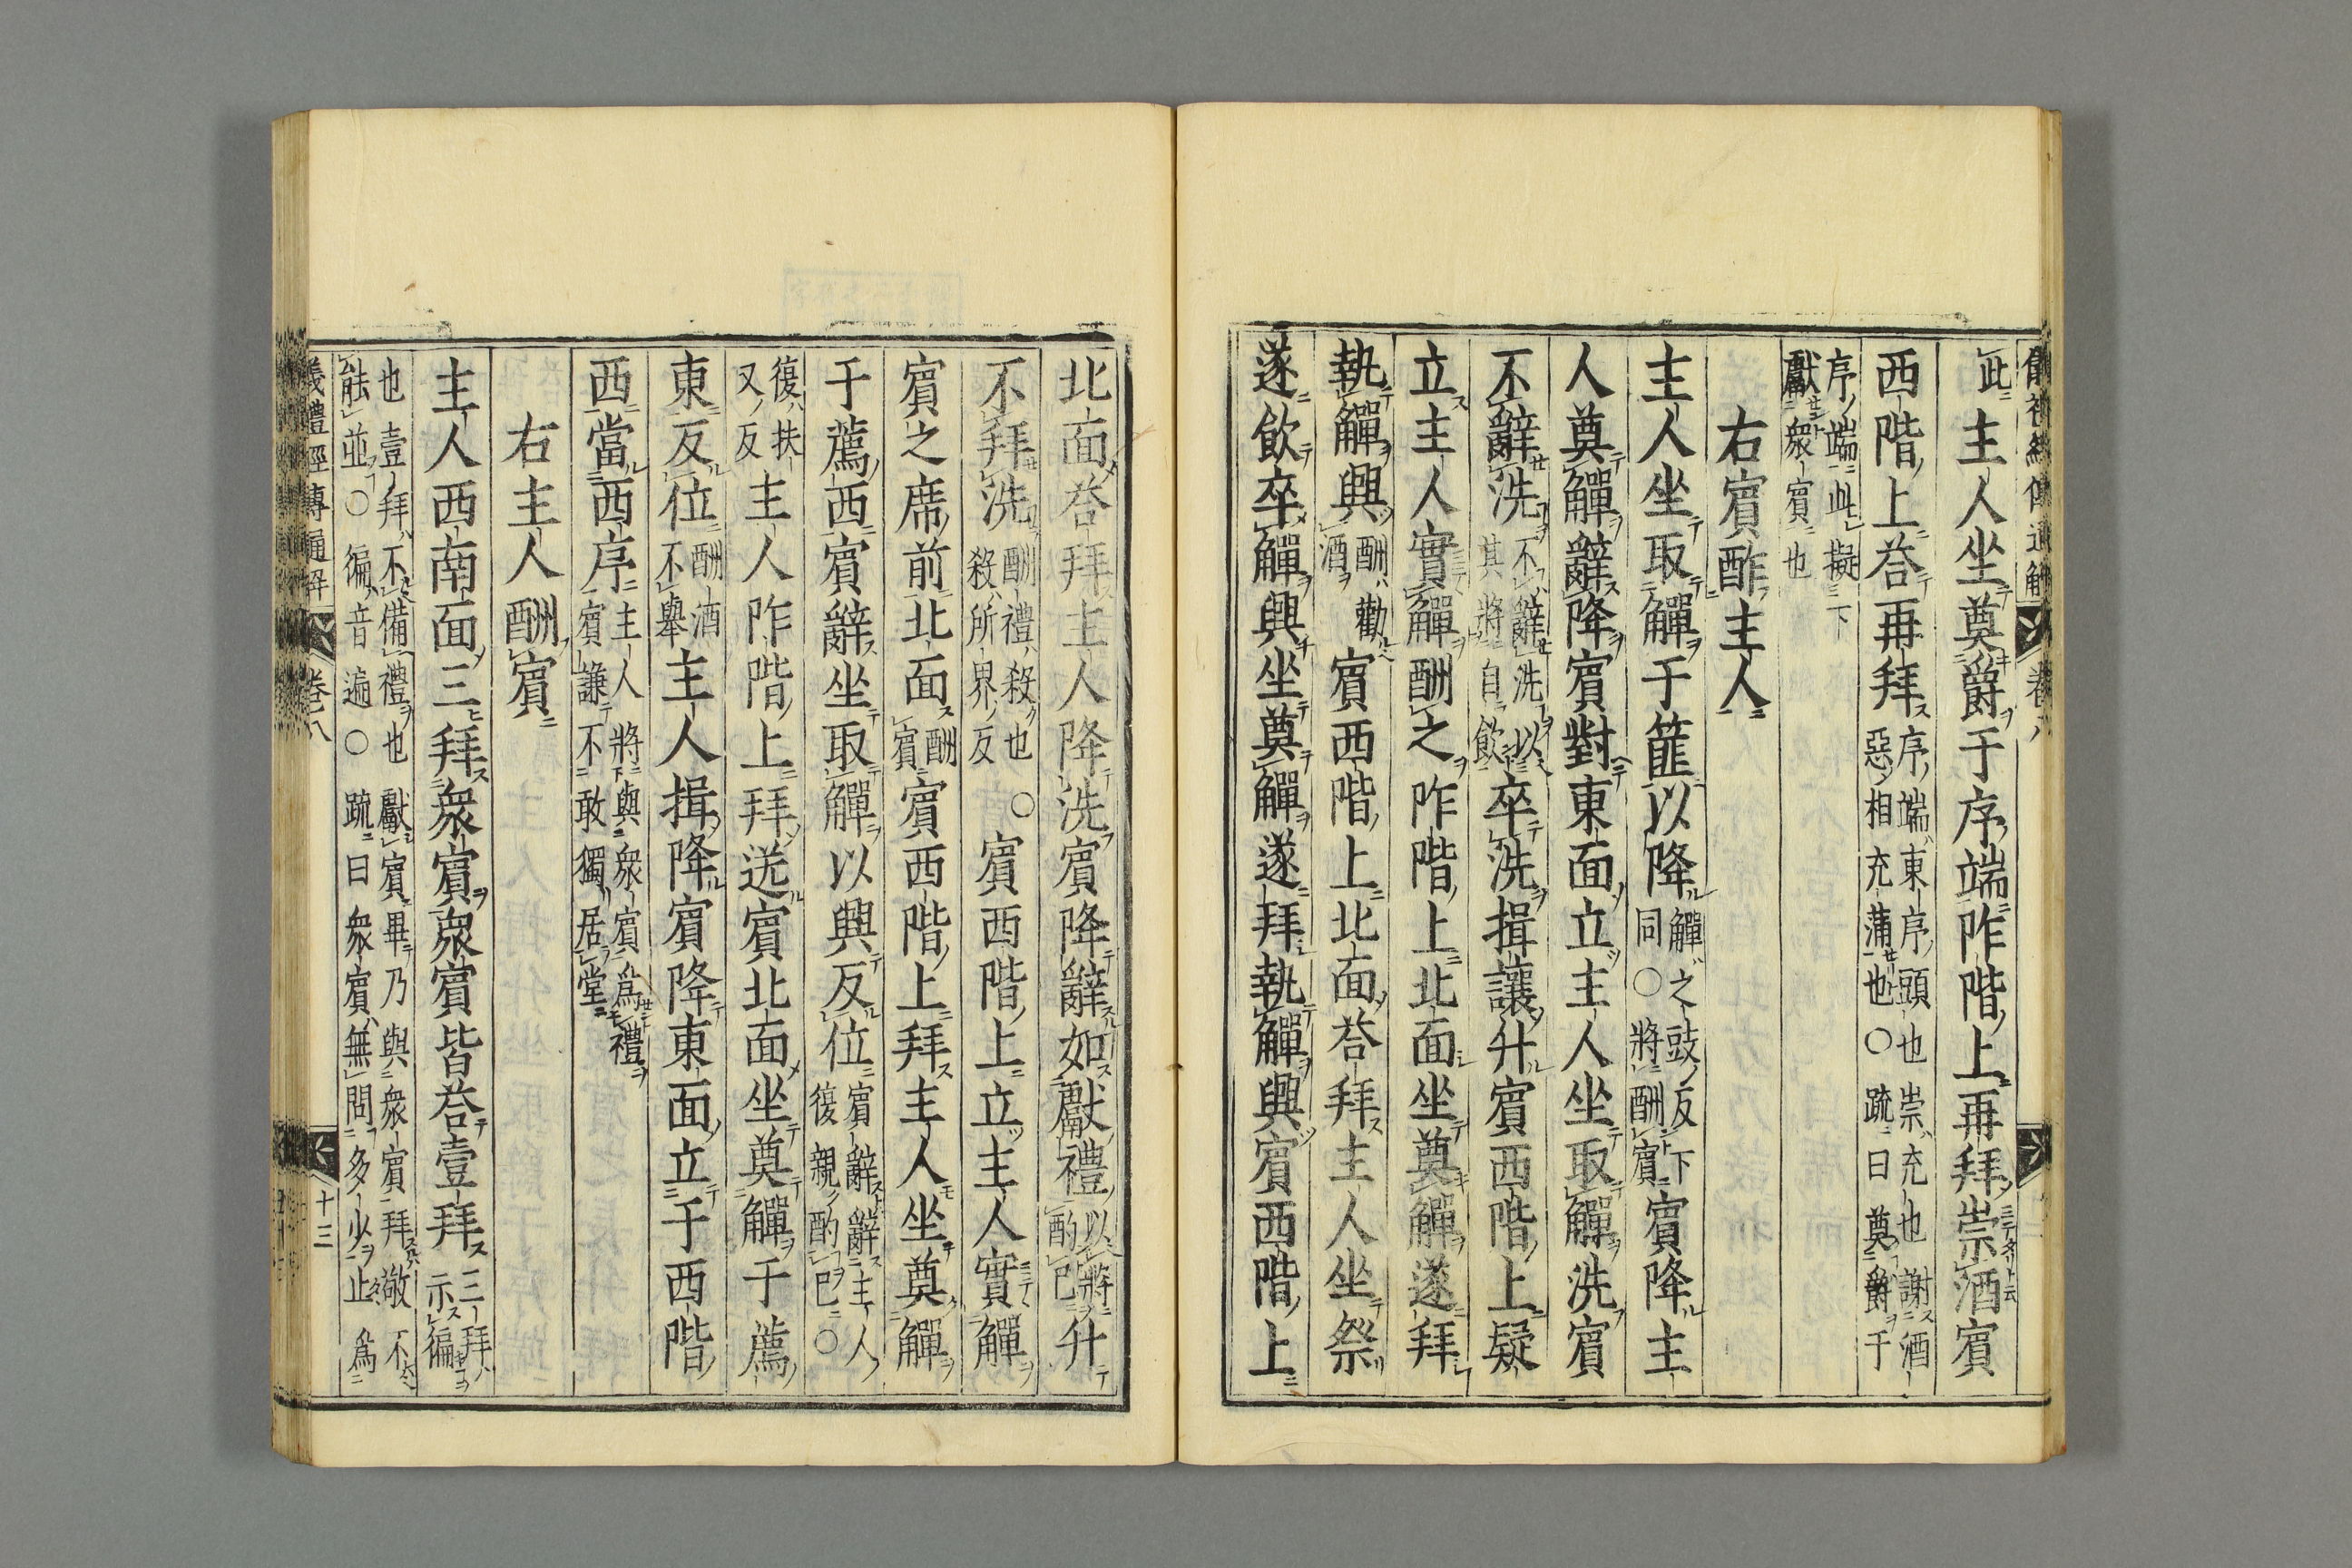 儀禮經傳通解 卷八
此主人坐奠爵于序端阼階上再拜崇酒賓
西階上荅再拜序端東序頭也崇充也謝酒
惡相充蒲也〇疏曰奠爵于
序端此擬下
獻衆賓也
右賓酢主人
主人坐取觶于篚以降觶之豉反下
同〇將酬賓賓降主
人奠觶辭降賓對東面立主人坐取觶洗賓
不辭洗不辭洗以
其將自飲卒洗揖讓升賓西階上疑
立主人實觶酬之阼階上北面坐奠觶遂拜
執觶興酬勸
酒賓西階上北面荅拜主人坐祭
遂飲卒觶興坐奠觶遂拜執觶興賓西階上
北面荅拜主人降洗賓降辭如獻禮以將
酌已升
不拜洗酬禮殺也
殺所界反〇賓西階上立主人實觶
賓之席前北面酬
賓賓西階上拜主人坐奠觶
于薦西賓辭坐取觶以興反位賓辭辭主人
復親酌已〇
復扶
又反主人阼階上拜送賓北面坐奠觶于薦
東反位酬酒
不舉主人揖降賓降東面立于西階
西當西序主人將與衆賓爲禮
賓謙不敢獨居堂
右主人酬賓
主人西南面三拜衆賓衆賓皆荅壹拜三拜
示徧
也壹拜不備禮也獻賓畢乃與衆賓拜敬不
能並〇徧音遍〇疏曰衆賓無問多少止爲
儀禮經傳通解 卷八 十三